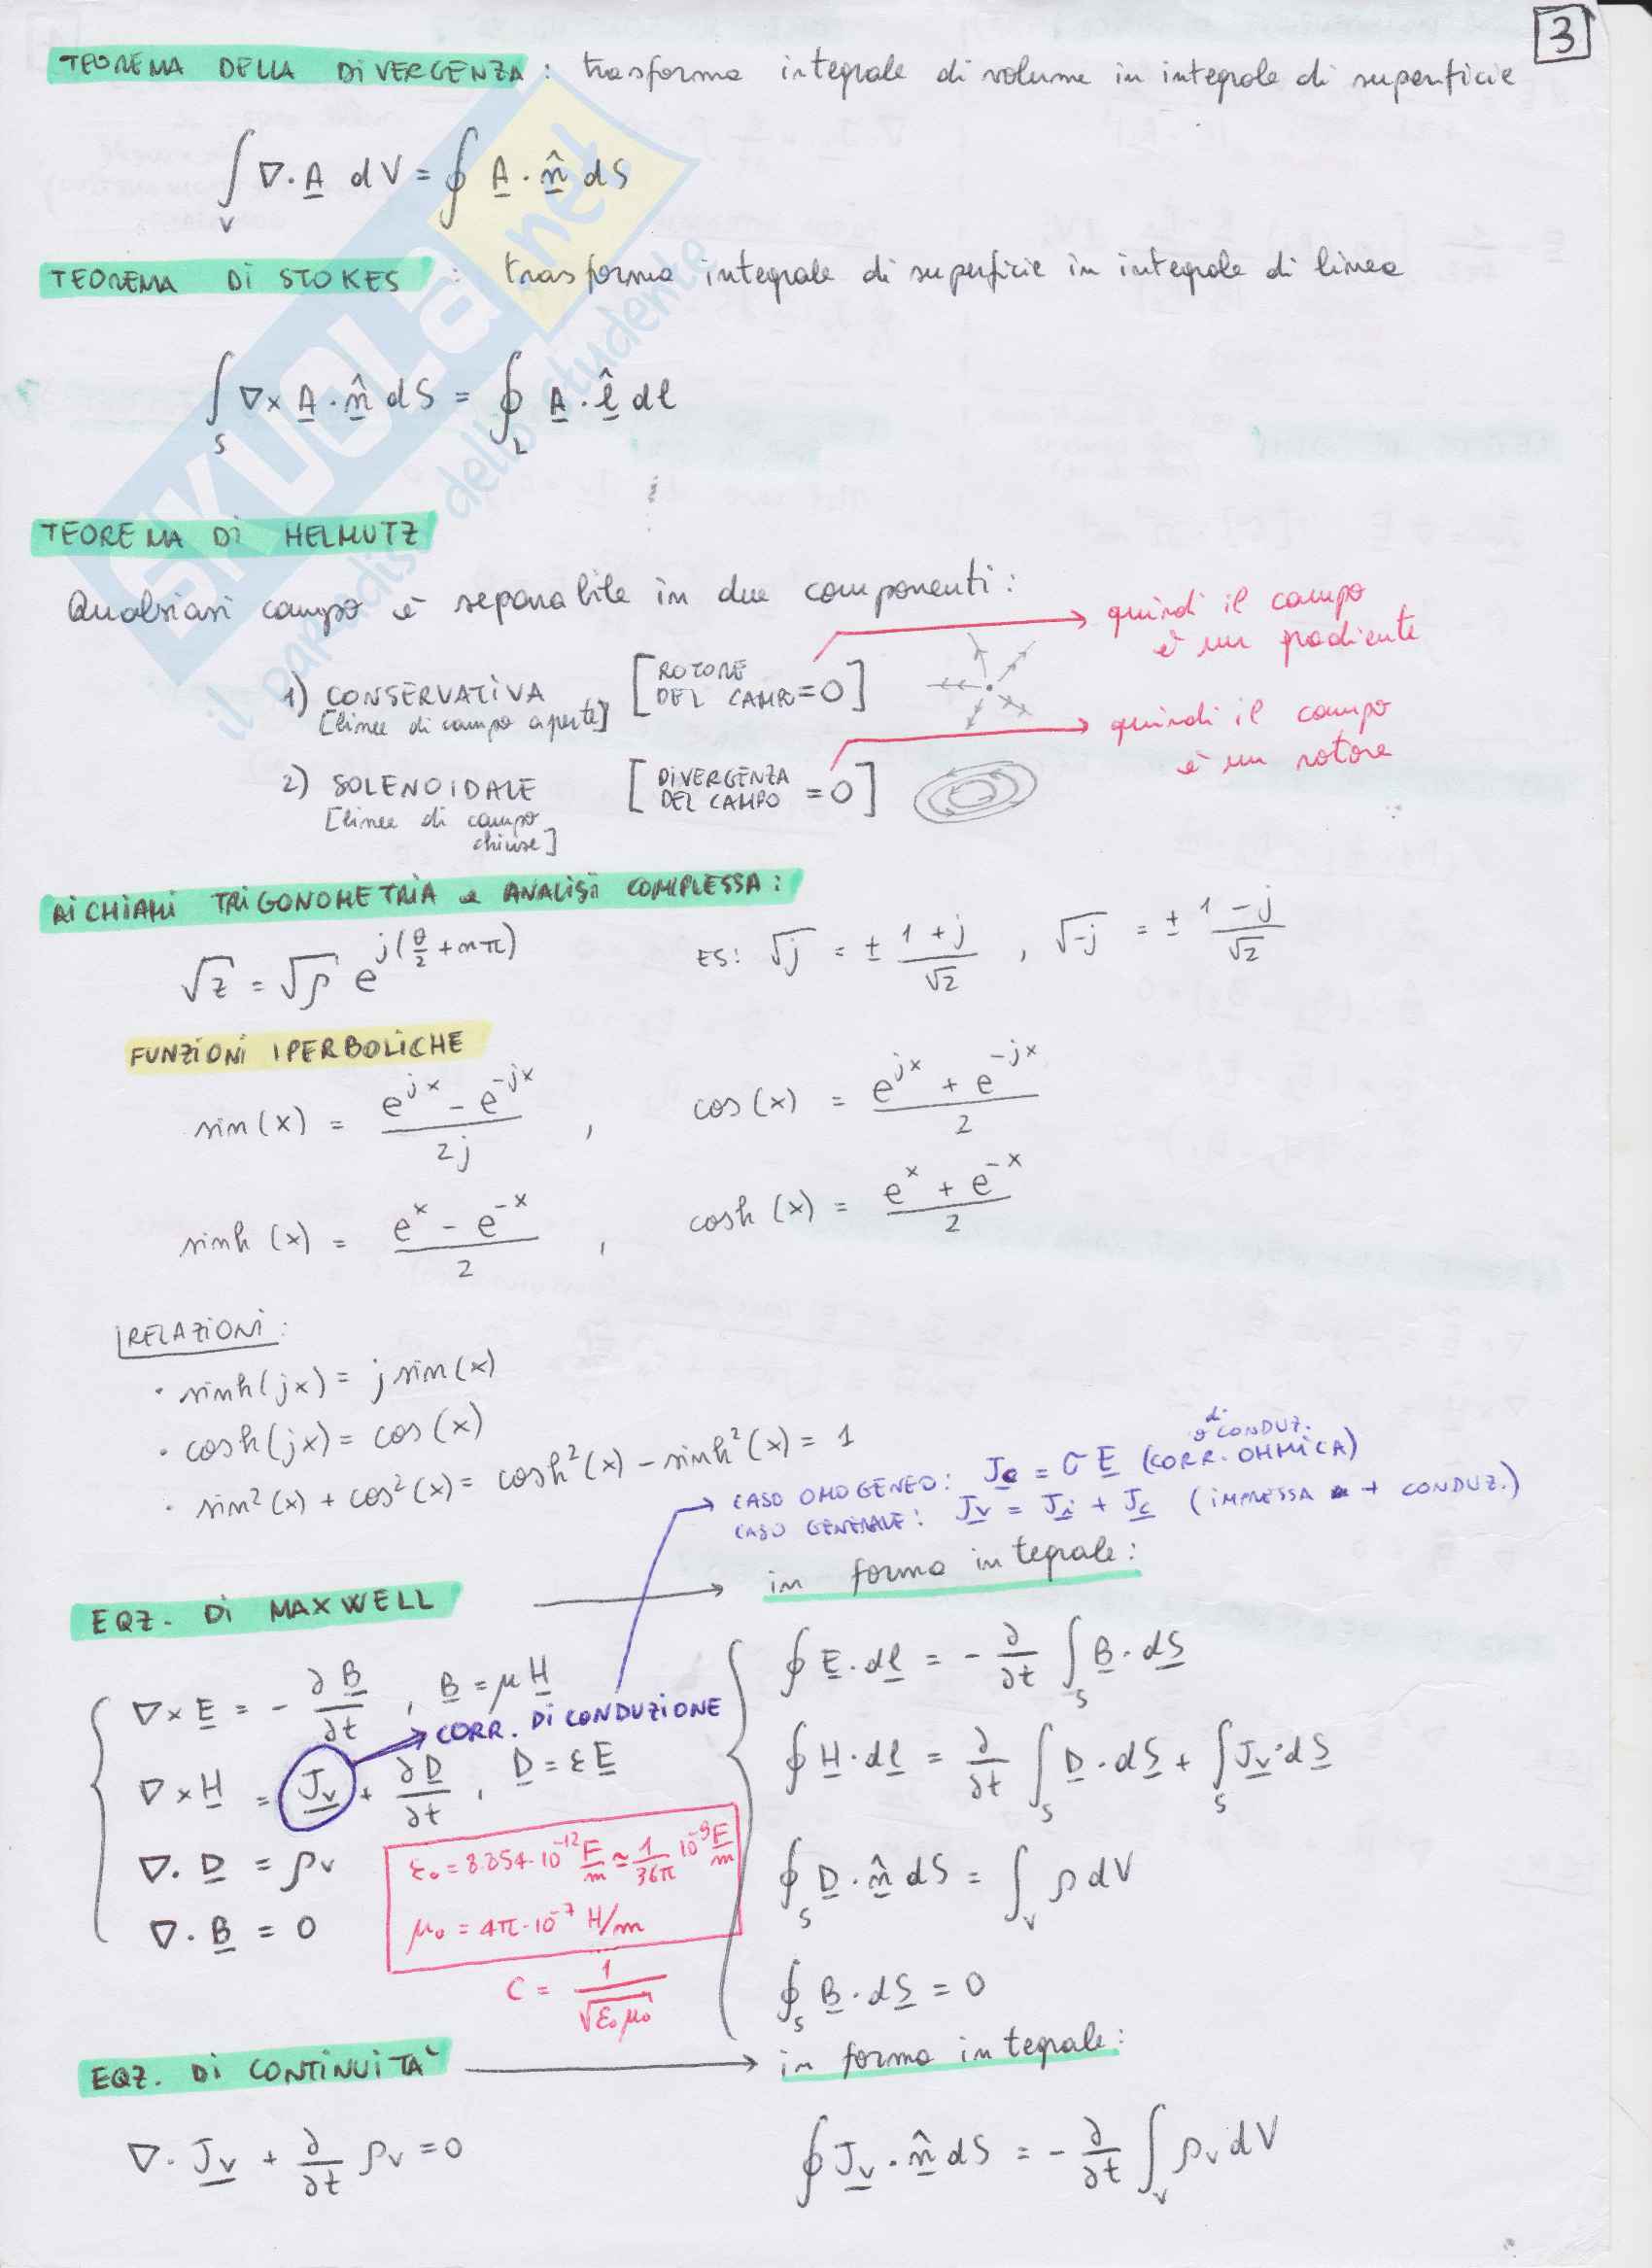 3
TEOREMA DELLA DIVERGENZA : trasforma integrale di volume in integrale di superficie
∫_V ∇·A dV = ∮ A·n̂ dS
TEOREMA DI STOKES : trasforma integrale di superficie in integrale di linea
∫_S ∇×A·n̂ dS = ∮_L A·l̂ dl
TEOREMA DI HELMUTZ
Qualsiasi campo è separabile in due componenti:
1) CONSERVATIVA [ROTORE DEL CAMPO = 0] → quindi il campo è un gradiente
[linee di campo aperte]
2) SOLENOIDALE [DIVERGENZA DEL CAMPO = 0] → quindi il campo è un rotore
[linee di campo chiuse]
RICHIAMI TRIGONOMETRIA e ANALISI COMPLESSA:
√z = √ρ e^{j(θ/2 + nπ)} ES: √j = ± (1+j)/√2 , √-j = ± (1-j)/√2
FUNZIONI IPERBOLICHE
sin(x) = (e^{jx} - e^{-jx})/2j , cos(x) = (e^{jx} + e^{-jx})/2
sinh(x) = (e^x - e^{-x})/2 , cosh(x) = (e^x + e^{-x})/2
RELAZIONI:
· sinh(jx) = j sin(x)
· cosh(jx) = cos(x)
· sin²(x) + cos²(x) = cosh²(x) - sinh²(x) = 1
→ CASO OMOGENEO: Jc = σ E (CORR. OHMICA) o di CONDUZ.
CASO GENERALE: Jv = Ji + Jc (IMPRESSA + CONDUZ.)
EQZ. DI MAXWELL → in forma integrale:
∇×E = - ∂B/∂t , B = μH
CORR. DI CONDUZIONE
∇×H = Jv + ∂D/∂t , D = εE
∇·D = ρv
∇·B = 0
ε₀ = 8.854·10^{-12} F/m ≃ 1/36π 10^{-9} F/m
μ₀ = 4π·10^{-7} H/m
C = 1/√(ε₀μ₀)
∮ E·dl = - ∂/∂t ∫_S B·dS
∮ H·dl = ∂/∂t ∫_S D·dS + ∫_S Jv·dS
∮_S D·n̂ dS = ∫_V ρ dV
∮_S B·dS = 0
EQZ. DI CONTINUITÀ → in forma integrale:
∇·Jv + ∂/∂t ρv = 0
∮ Jv·n̂ dS = - ∂/∂t ∫_V ρv dV
SKUOLA.net
il paradiso dello studente